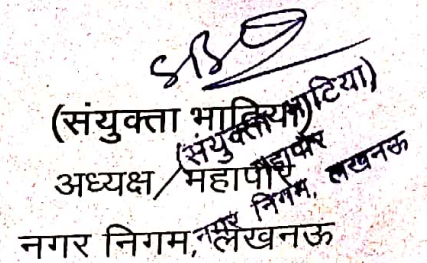 (संयुक्ता भाटिया)
अध्यक्ष/महापौर
नगर निगम, लखनऊ
(संयुक्ता भाटिया)
महापौर
नगर निगम, लखनऊ